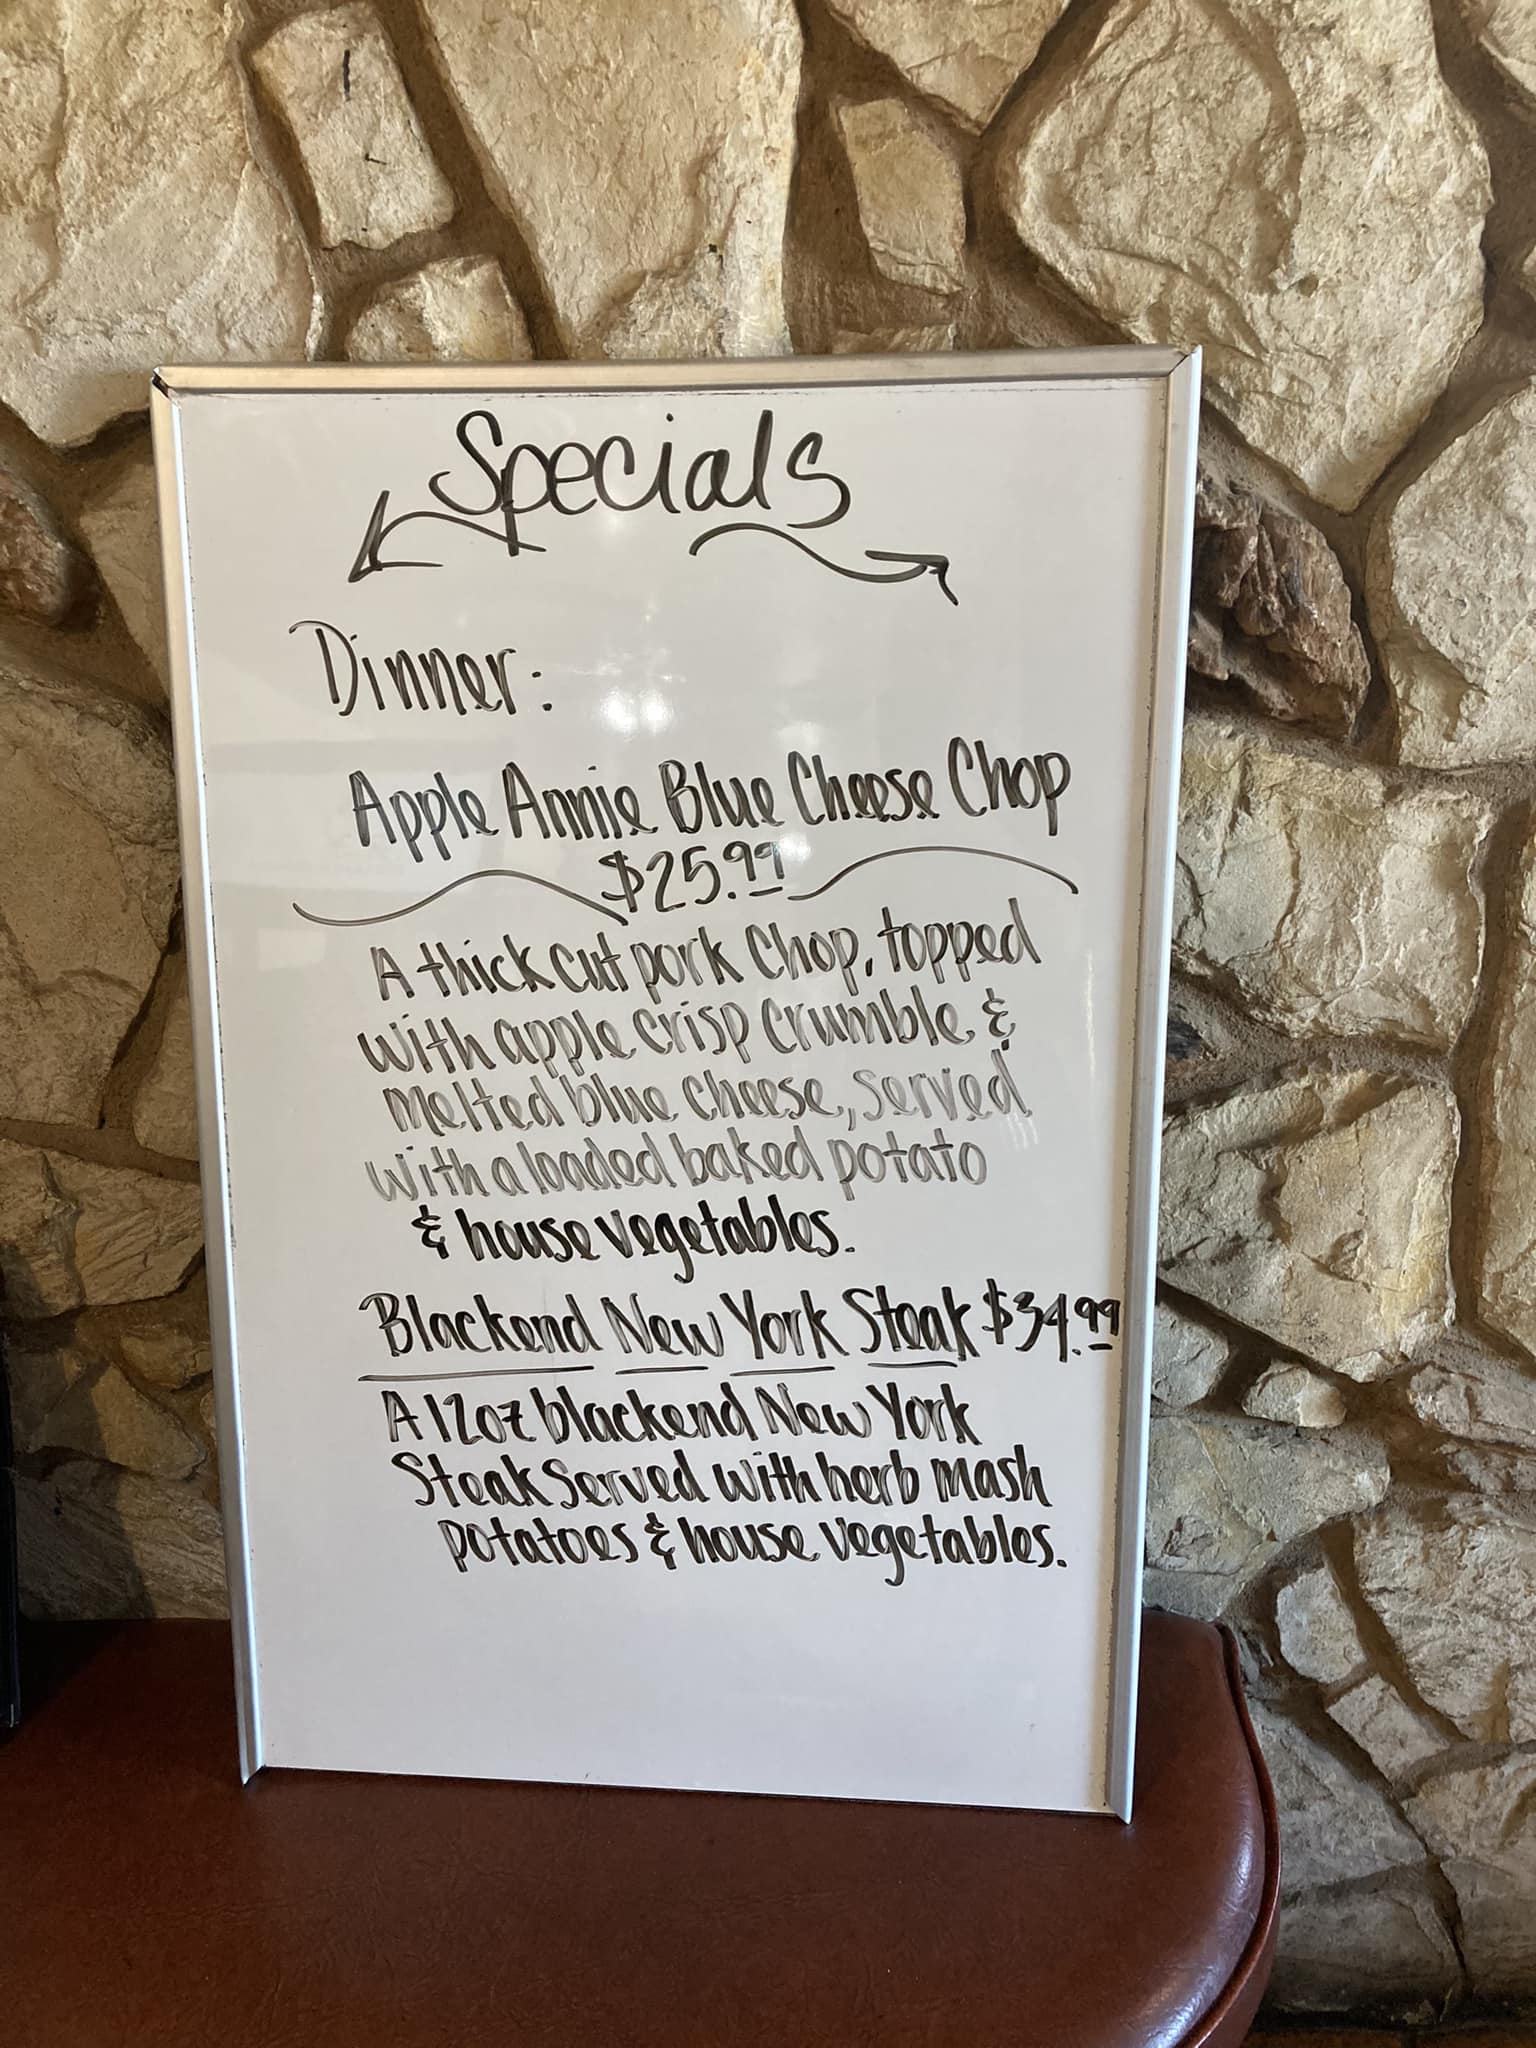 Specials
Dinner:
Apple Annie Blue Cheese Chop
$25.99
A thick cut pork Chop, topped
with apple crisp crumble &
Melted blue cheese, served
with a loaded baked potato
& house vegetables.
Blackend New York Steak $34.99
A 12oz blackend New York
Steak served with herb mash
potatoes & house vegetables.